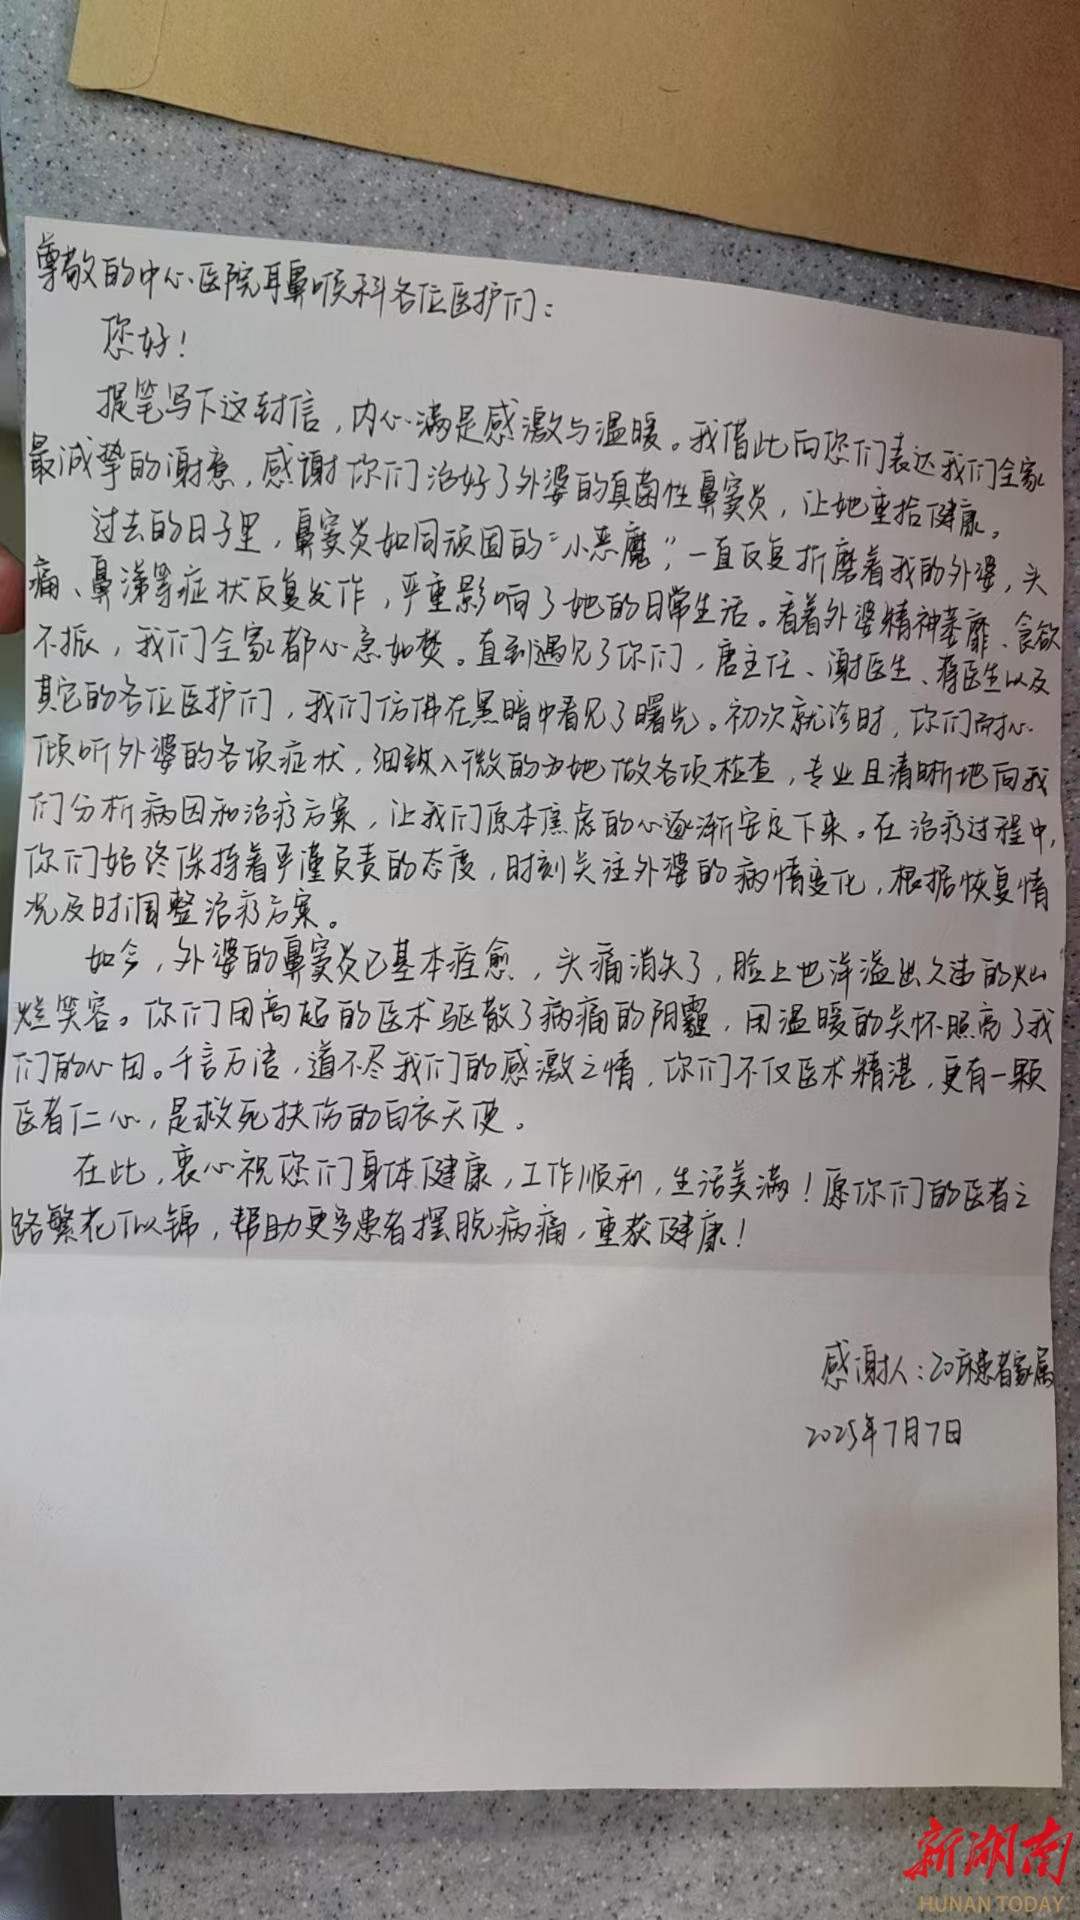 尊敬的中心医院耳鼻喉科各位医护们：
您好！
提笔写下这封信，内心满是感激与温暖。我借此向您们表达我们全家
最诚挚的谢意，感谢你们治好了外婆的真菌性鼻窦炎，让她重拾健康。
过去的日子里，鼻窦炎如同顽固的“小恶魔”，一直反复折磨着我的外婆，头
痛、鼻涕等症状反复发作，严重影响了她的日常生活。看着外婆精神萎靡、食欲
不振，我们全家都心急如焚。直到遇见了你们，唐主任、谢医生、蒋医生以及
其它的各位医护们，我们仿佛在黑暗中看见了曙光。初次就诊时，你们耐心
倾听外婆的各项症状，细致入微的为她做各项检查，专业且清晰地向我
们分析病因和治疗方案，让我们原本焦虑的心逐渐安定下来。在治疗过程中，
你们始终保持着严谨负责的态度，时刻关注外婆的病情变化，根据恢复情
况及时调整治疗方案。
如今，外婆的鼻窦炎已基本痊愈，头痛消失了，脸上也洋溢出久违的灿
烂笑容。你们用高超的医术驱散了病痛的阴霾，用温暖的关怀照亮了我
们的心田。千言万语，道不尽我们的感激之情，你们不仅医术精湛，更有一颗
医者仁心，是救死扶伤的白衣天使。
在此，衷心祝您们身体健康，工作顺利，生活美满！愿你们的医者之
路繁花似锦，帮助更多患者摆脱病痛，重获健康！
感谢人：20床患者家属
2025年7月7日
新湖南
HUNAN TODAY